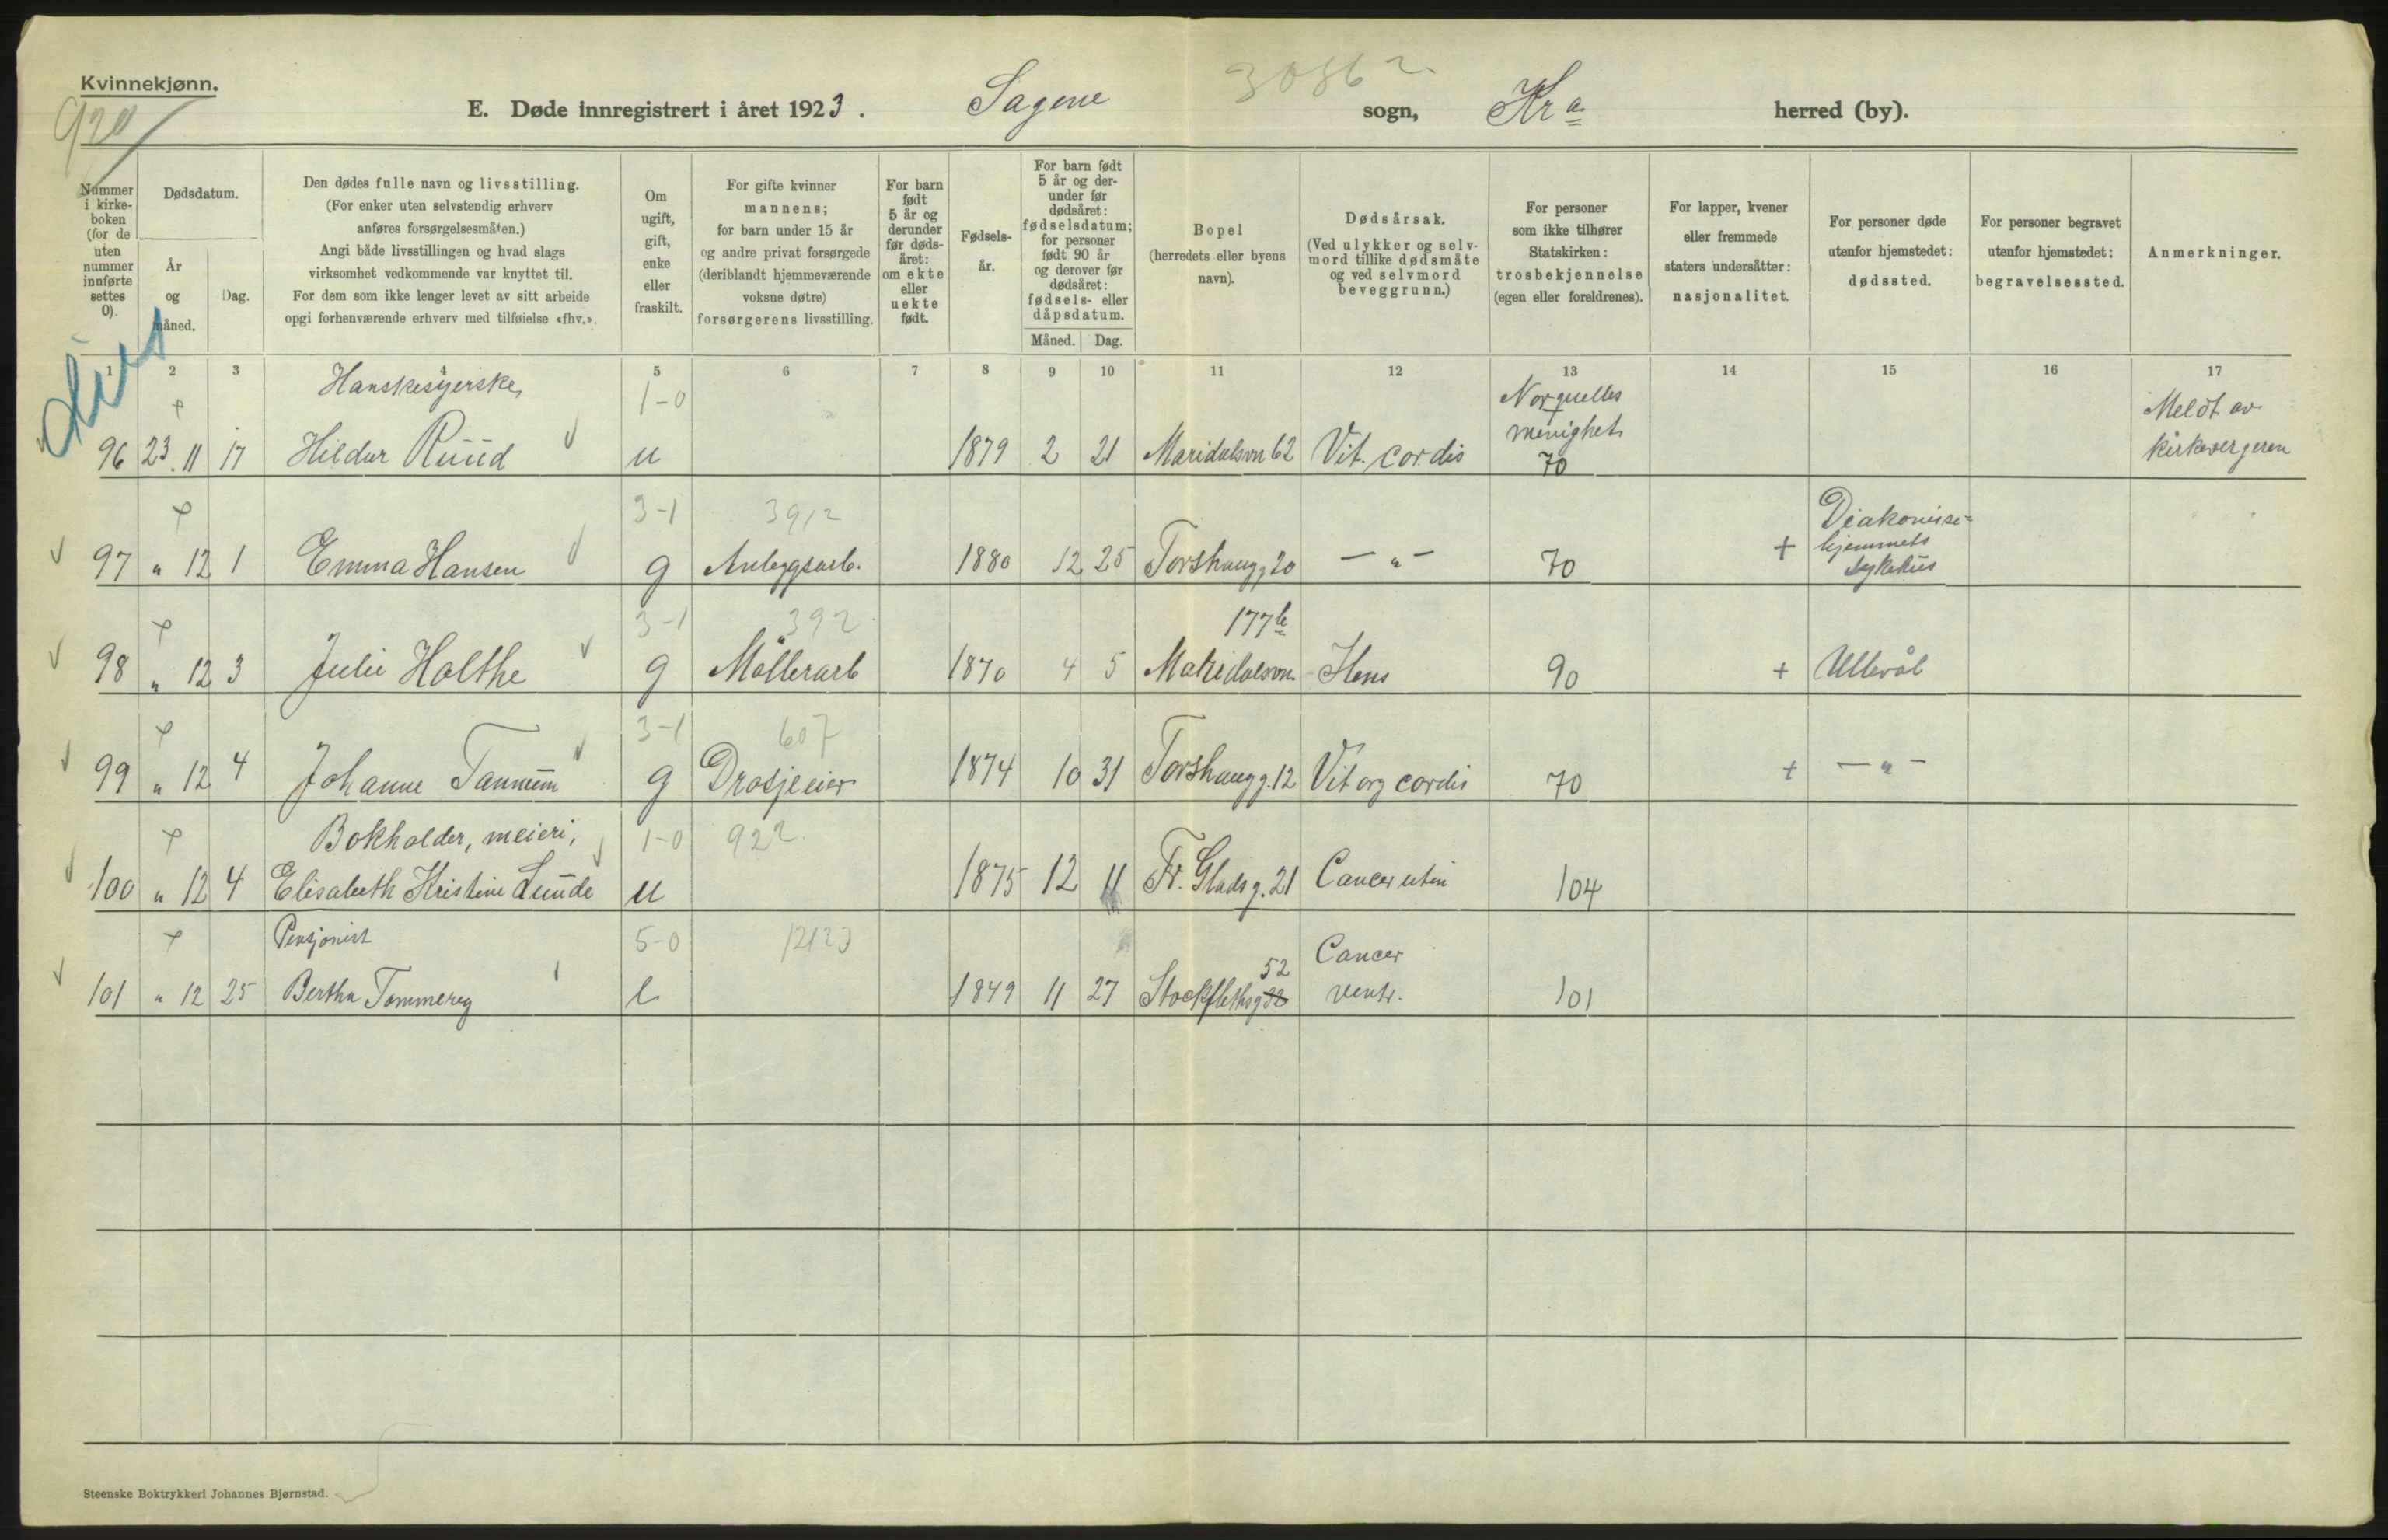 Kvinnekjønn.
920
E. Døde innregistrert i året 1923. Sagene sogn, Kra herred (by).
30862
Nummer i kirkeboken (for de uten nummer innførte settes 0).
Dødsdatum.
År og måned.
Dag.
Den dødes fulle navn og livsstilling.
(For enker uten selvstendig erhverv
anføres forsørgelsesmåten.)
Angi både livsstillingen og hvad slags
virksomhet vedkommende var knyttet til.
For dem som ikke lenger levet av sitt arbeide
opgi forhenværende erhverv med tilføielse «fhv.».
Om
ugift,
gift,
enke
eller
fraskilt.
For gifte kvinner
mannens;
for barn under 15 år
og andre privat forsørgede
(deriblandt hjemmeværende
voksne døtre)
forsørgerens livsstilling.
For barn
født
5 år og
derunder
før døds-
året:
om ekte
eller
uekte
født.
Fødsels-
år.
For barn født
5 år og der-
under før
dødsåret:
fødselsdatum;
for personer
født 90 år
og derover før
dødsåret:
fødsels- eller
dåpsdatum.
Måned. Dag.
Bopel
(herredets eller byens
navn).
Dødsårsak.
(Ved ulykker og selv-
mord tillike dødsmåte
og ved selvmord
beveggrunn.)
For personer
som ikke tilhører
Statskirken:
trosbekjennelse
(egen eller foreldrenes).
For lapper, kvener
eller fremmede
staters undersåtter:
nasjonalitet.
For personer døde
utenfor hjemstedet:
dødssted.
For personer begravet
utenfor hjemstedet:
begravelsessted.
Anmerkninger.
1 2 3 4 5 6 7 8 9 10 11 12 13 14 15 16 17
Hanskesyerske, 1-0 Meldt av
menighet
96 23.11 17 Hildur Ruud u 1879 2 21 Maridalsvn 62 Vit. cordis 70 kirkevergeren
3-1 3912 Diakonisse-
hjemmets
97 " 12 1 Emma Hansen g Anleggsarb. 1880 12 25 Torshaugg 20 — " — 70 + sykehus
3-1 392 177b
98 " 12 3 Julie Holthe g Möllerarb 1870 4 5 Maridalsvn. Hens 90 + Ullevål
3-1 607
99 " 12 4 Johanne Tannum g Drosjeeier 1874 10 31 Torshaugg. 12 Vit org cordis 70 + — " —
Bokholder, meieri, 1-0 922
100 " 12 4 Elisabeth Kristine Lunde u 1875 12 11 Fr. Gladsg. 21 Cancer uteri 104
Pensjonist 5-0 12123 Cancer
52
101 " 12 25 Bertha Tommereg e 1849 11 27 Stockflethsg 32 ventr. 101
Steenske Boktrykkeri Johannes Bjørnstad.